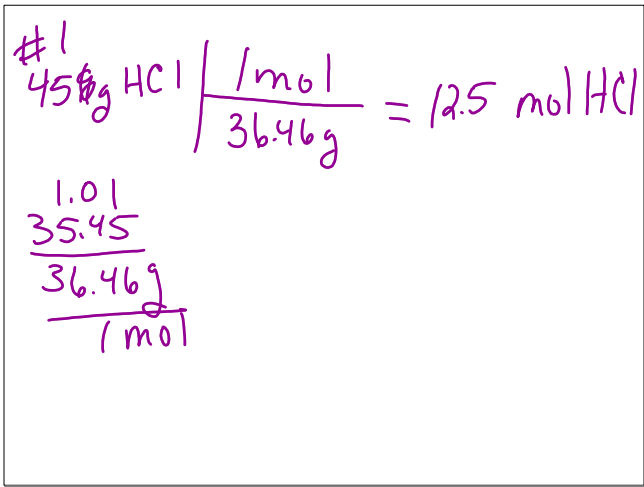 #1
456g HCl | 1mol / 36.46g = 12.5 mol HCl
1.01
35.45
36.46g
1 mol